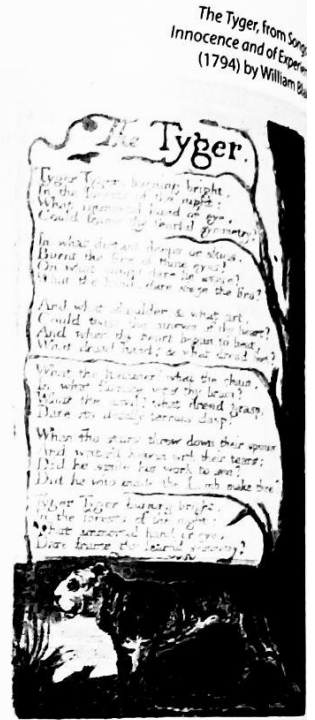 The Tyger, from Songs
Innocence and of Experien
(1794) by William Bla
The Tyger.
Tyger Tyger, burning bright,
In the forests of the night;
What immortal hand or eye,
Could frame thy fearful symmetry?
In what distant deeps or skies,
Burnt the fire of thine eyes?
On what wings dare he aspire?
What the hand, dare sieze the fire?
And what shoulder, & what art,
Could twist the sinews of thy heart?
And when thy heart began to beat,
What dread hand? & what dread feet?
What the hammer? what the chain,
In what furnace was thy brain?
What the anvil? what dread grasp,
Dare its deadly terrors clasp?
When the stars threw down their spears
And water'd heaven with their tears:
Did he smile his work to see?
Did he who made the Lamb make thee?
Tyger Tyger burning bright,
In the forests of the night:
What immortal hand or eye,
Dare frame thy fearful symmetry?